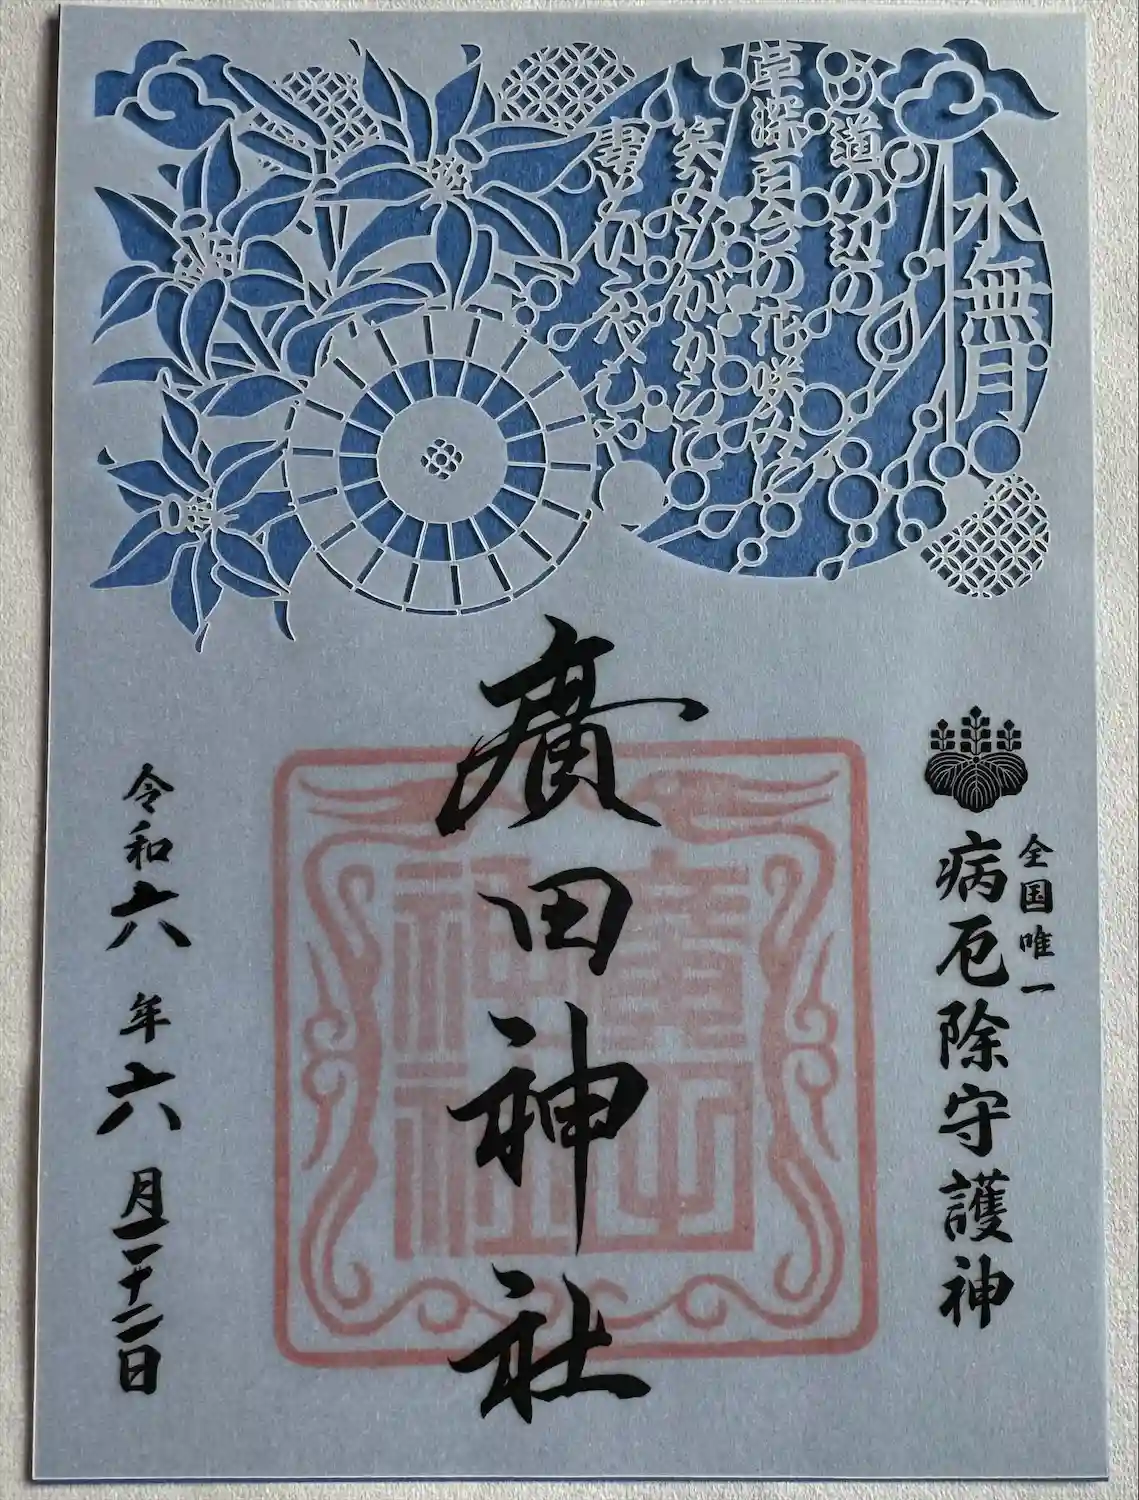 水無月
道の辺の
草深百合の花咲みに
笑みしがからに
妻といふべしや
全国唯一
病厄除守護神
廣田神社
廣田神社
令和六年六月二十二日